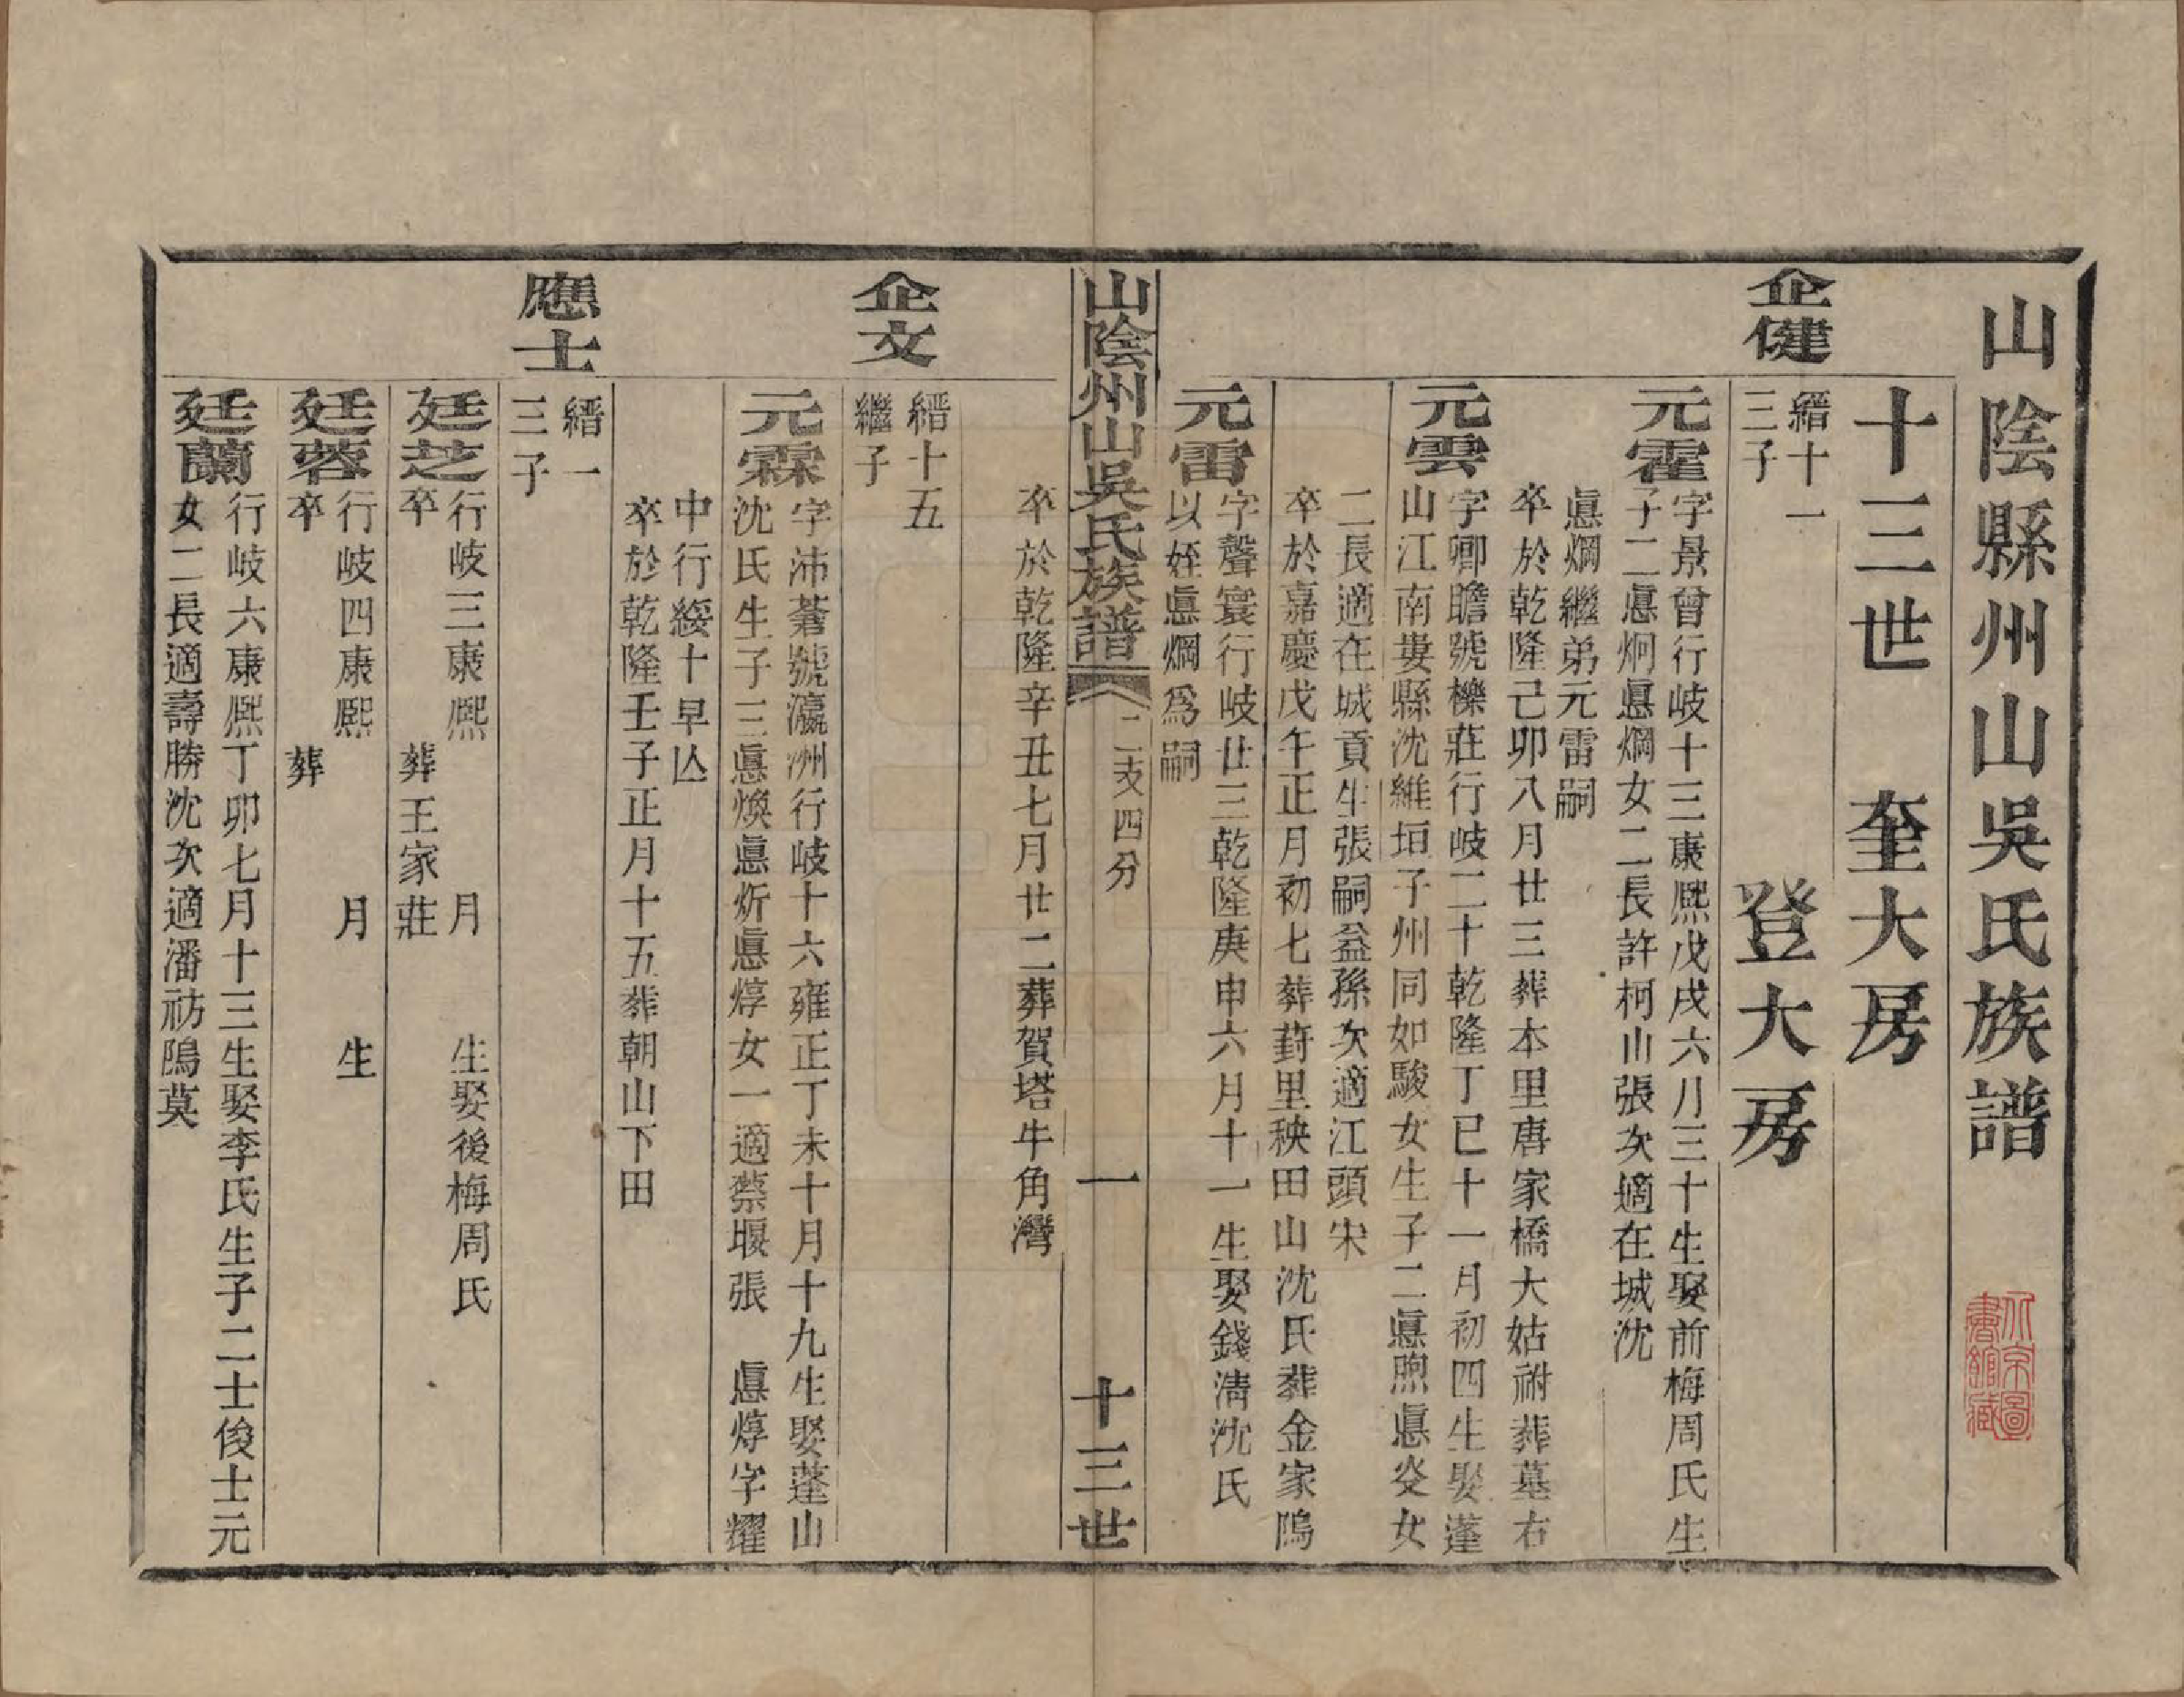 山陰縣州山吳氏族譜
十三世 奎大房
登大房
企健
縉十一
三子
元霍
字景曾行岐十三康熙戊戌六月三十生娶前梅周氏生
子二惪炯惪烱女二長許柯山張次適在城沈
惪烱繼弟元雷嗣
卒於乾隆己卯八月廿三葬本里唐家橋大姑祔葬墓右
元雲
字卿瞻號櫟莊行岐二十乾隆丁巳十一月初四生娶蓬
山江南婁縣沈維垣子州同如駿女生子二惪煦惪炎女
二長適在城貢生張嗣益孫次適江頭宋
卒於嘉慶戊午正月初七葬葑里秧田山沈氏葬金家隖
元雷
字聲寰行岐廿三乾隆庚申六月十一生娶錢清沈氏
以姪惪烱為嗣
山陰州山吳氏族譜
二支四分
一
十三世
卒於乾隆辛丑七月廿二葬賀塔牛角灣
企文
縉十五
繼子
元霖
字沛蒼號瀛洲行岐十六雍正丁未十月十九生娶蓬山
沈氏生子三惪煥惪炘惪焞女一適蔡堰張 惪焞字耀
中行綏十早亾
卒於乾隆壬子正月十五葬朝山下田
應士
縉一
三子
廷芝
行岐三康熙 月 生娶後梅周氏
卒 葬王家莊
廷蓉
行岐四康熙 月 生
卒 葬
廷蘭
行岐六康熙丁卯七月十三生娶李氏生子二士俊士元
女二長適壽勝沈次適潘祊隖莫